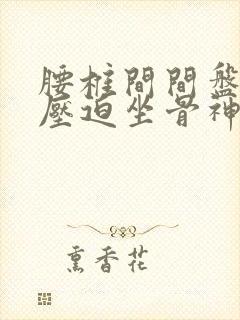 腰椎間間盤
壓迫坐骨神
熏香花